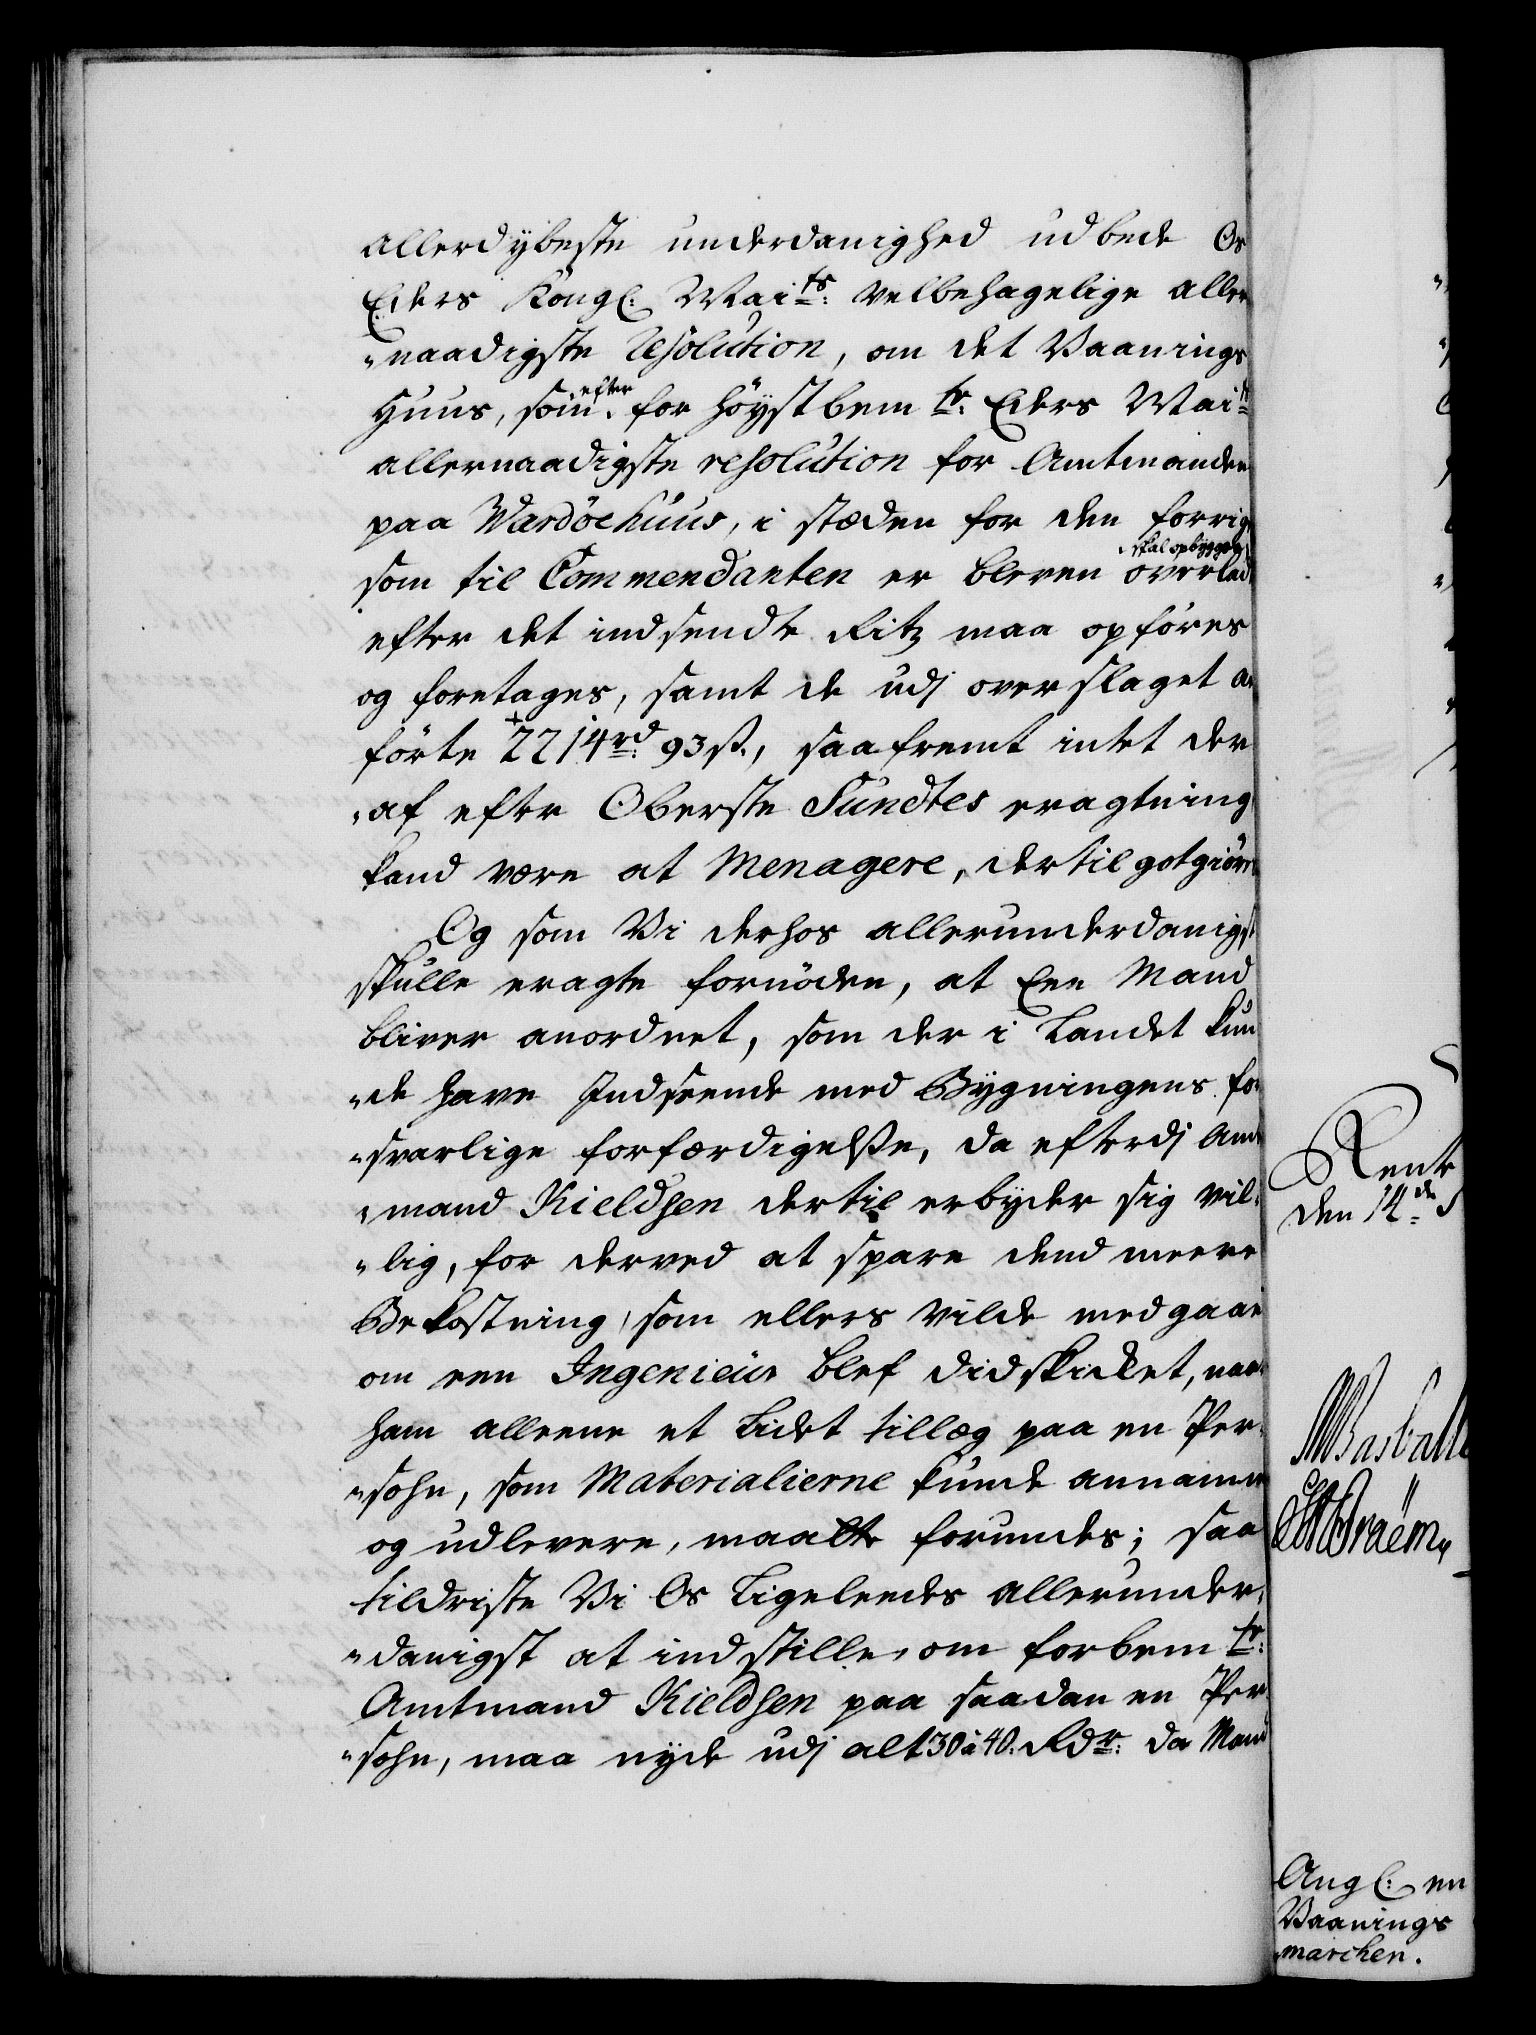 allerdybeste underdanighed udbede Os
Eders Kongl: Maits: velbehagelige aller
"naadigste resolution, om det Vaanings
Huus, som efter for höystbemte: Eders Mait
allernaadigste resolution for Amtmanden
paa Wardöehuus, i stæden for den forrige
som til Commendanten er bleven overladt skal opbygges,
efter det indsendte Ritz maa opföres
og foretages, samt de udj overslaget an
förte 2214rd 93s., saafremt intet der
"af efter Oberste Sundtes eragtning
kand være at Menagere, dertil gotgiöres
Og som Vi derhos allerunderdanigst
skulle eragte fornöden, at Een Mand
bliver anordnet, som der i Landet kun
"de have Indseende med Bygningens for
"svarlige forfærdigelse, da efterdj Amt
"mand Kieldsen dertil erbyder sig vil"
"lig, for derved at spare dend meere
Bekostning, som ellers vilde medgaae
om een Ingenieur blef didskicket, naar
ham alleene et Lidet tillæg paa en Per"
"sohn, som Materialierne kunde annamme
og udlevere, maatte forundes; saa
tildriste Vi Os Ligeleedes allerunder"
"danigst at indstille, om forbemte:
Amtmand Kieldsen paa saadan en Per
"sohn, maa nyde udj alt 30 à 40. Rdr: da Mand
Rente
den 14de
Ang: en
Vaanings
marchen.